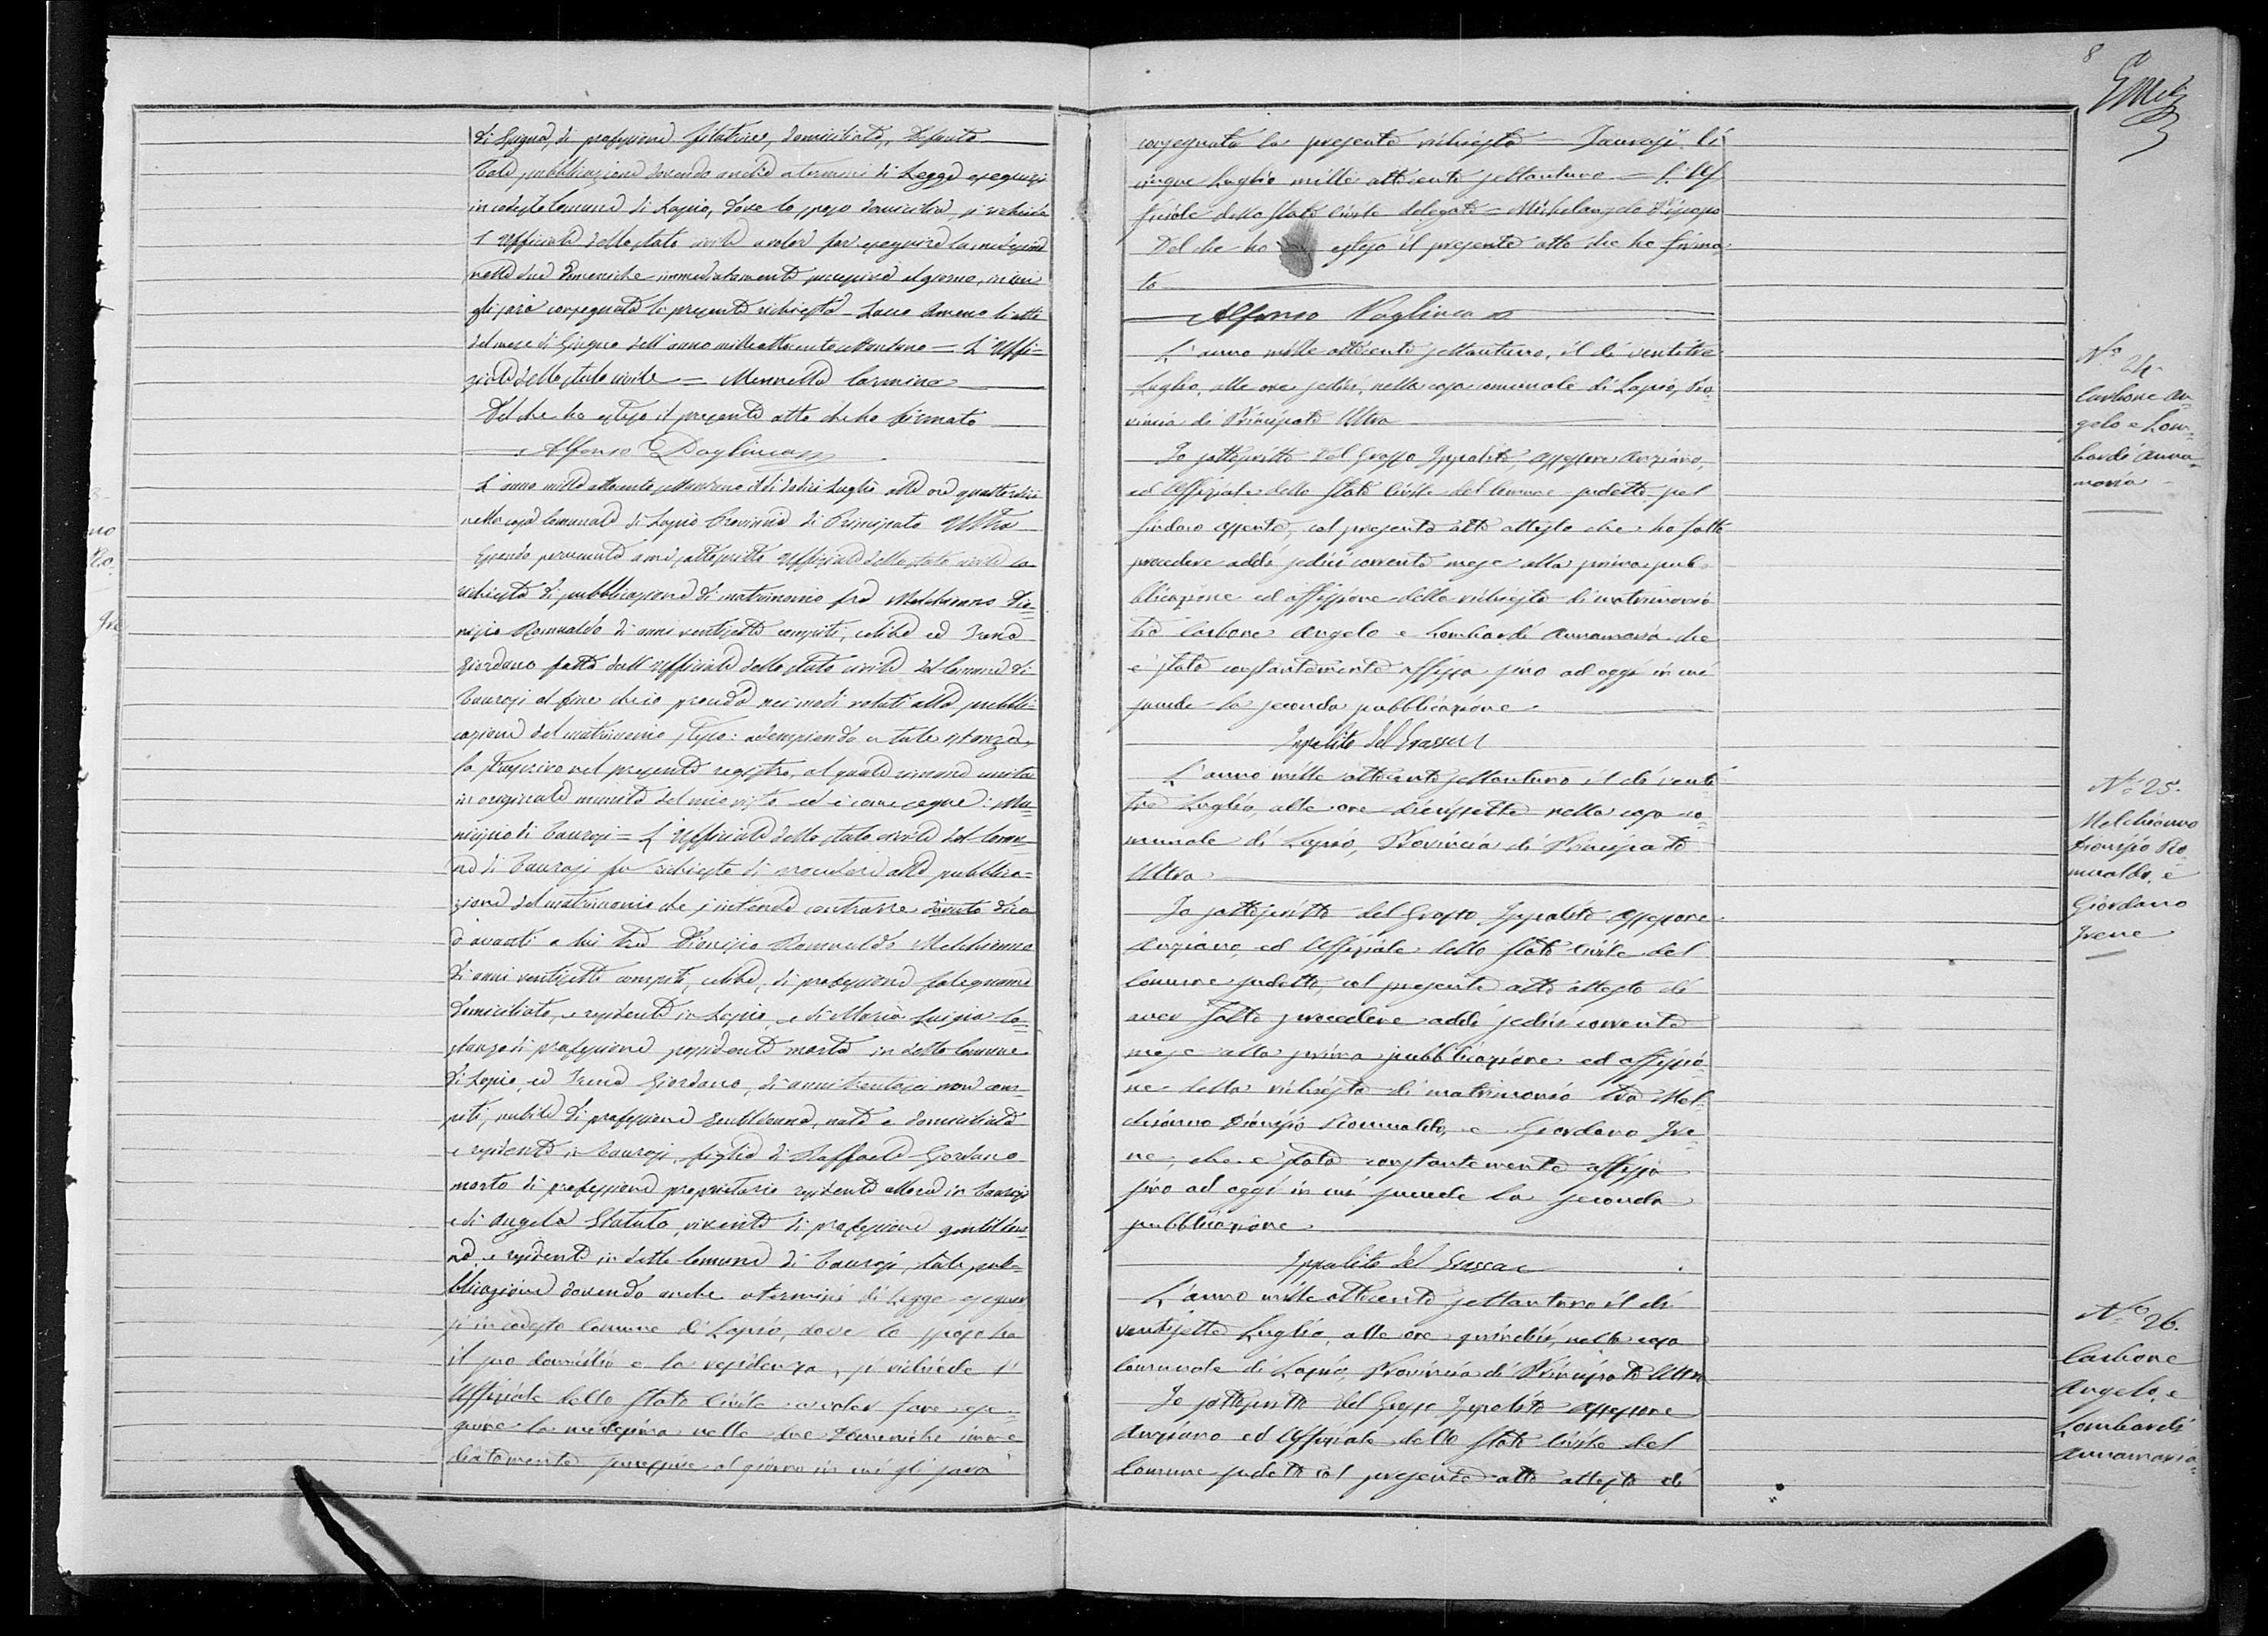 di Giugno, di professione filatrice, domiciliata, defunta
Tale pubblicazione dovendo anche a termini di Legge eseguirsi
in codesto Comune di Lapio, dove lo sposo domicilia, si richiede
l'Uffiziale dello stato civile a voler far eseguire la medesima
nelle due Domeniche immediatamente successive al giorno, in cui
gli sarà consegnata la presente richiesta
del mese di Giugno dell'anno milleottocentosettantuno = L'Uffi=
ziale dello stato civile = Mennetta Carmine
Del che ho esteso il presente atto che ho firmato
Alfonso Pagliuca
L'anno mille ottocento settantuno il dì dodici Luglio alle ore quattordici
nella casa Comunale di Lapio Provincia di Principato Ultra
Essendo pervenuta a me sottoscritto Uffiziale dello stato civile la
richiesta di pubblicazione di matrimonio fra Melchionno Dio=
nisio Romualdo di anni ventisette compiti, celibe ed Irene
Giordano fatta dall'Uffiziale dello stato civile del Comune di
Taurasi al fine che io proceda nei modi voluti alla pubbli=
cazione del matrimonio stesso: adempiendo a tale istanza,
la trascrivo nel presente registro, al quale rimane unita
in originale munita del mio visto ed è come segue: Mu=
nicipio di Taurasi = L'Uffiziale dello stato civile del Comu=
ne di Taurasi fa richiesta di procedere alla pubblica=
zione del matrimonio che s'intende contrarre
d'avanti a lui tra Dionisio Romualdo Melchionno
di anni ventisette compiti, celibe, di professione falegname
domiciliato, e residente in Lapio, e di Maria Luigia Co=
stanza di professione possidente morta in detto Comune
di Lapio, ed Irene Giordano, di anni trentasei non com=
piti, nubile di professione gentildonna, nata e domiciliata
e residente in Taurasi, figlia di Raffaele Giordano
morto di professione proprietario residente allora in Taurasi
e di Angela Statuto, vivente di professione gentildon=
na, e residente in detto Comune di Taurasi, tale pub=
blicazione dovendo anche a termini di Legge eseguir
si in codesto Comune di Lapio, dove lo sposo ha
il suo domicilio e la residenza, si richiede l'
Uffiziale dello Stato Civile a voler fare ese=
guire la medesima nelle due Domeniche imme
diatamente successive al giorno in cui gli sarà
8
consegnata la presente richiesta = Taurasi lì
cinque Luglio mille ottocento settantuno = L'Uf
fiziale dello Stato Civile delegato = Michelangelo
Del che ho esteso il presente atto che ho firma
to
Alfonso Pagliuca
N.° 24.
Carbone An=
gelo e Lom=
bardi Anna
maria
L'anno mille ottocento settantuno, il dì ventitre
Luglio, alle ore sedici, nella casa comunale di Lapio, Pro
vincia di Principato Ultra
Io sottoscritto Del Grosso Ippolito Assessore Anziano,
ed Uffiziale dello Stato Civile del Comune sudetto pel
Sindaco assente, col presente atto attesto che ho fatto
procedere addì sedici corrente mese alla prima pub=
blicazione ed affissione della richiesta di matrimonio
tra Carbone Angelo e Lombardi Annamaria che
è stata constantemente affissa sino ad oggi in cui
succede la seconda pubblicazione
Ippolito del Grosso
N.° 25.
Melchionno
Dionisio Ro=
mualdo, e
Giordano
Irene
L'anno mille ottocento settantuno il dì venti
tre Luglio, alle ore diecissette nella casa co=
munale di Lapio, Provincia di Principato
Ultra
Io sottoscritto del Grosso Ippolito Assessore
Anziano, ed Uffiziale dello Stato Civile del
Comune sudetto, col presente atto attesto di
aver fatto procedere addì sedici corrente
mese alla prima pubblicazione ed affissio=
ne della richiesta di matrimonio tra Mel=
chionno Dionisio Romualdo, e Giordano Ire=
ne, che è stata constantemente affissa
sino ad oggi in cui succede la seconda
pubblicazione
Ippolito del Grosso
N.° 26.
Carbone
Angelo, e
Lombardi
Annamaria
L'anno mille ottocento settantuno il dì
ventisette Luglio, alle ore quindici, nella casa
Comunale di Lapio, Provincia di Principato Ultra
Io sottoscritto Del Grosso Ippolito Assessore
Anziano ed Uffiziale dello Stato Civile del
Comune sudetto col presente atto attesto di